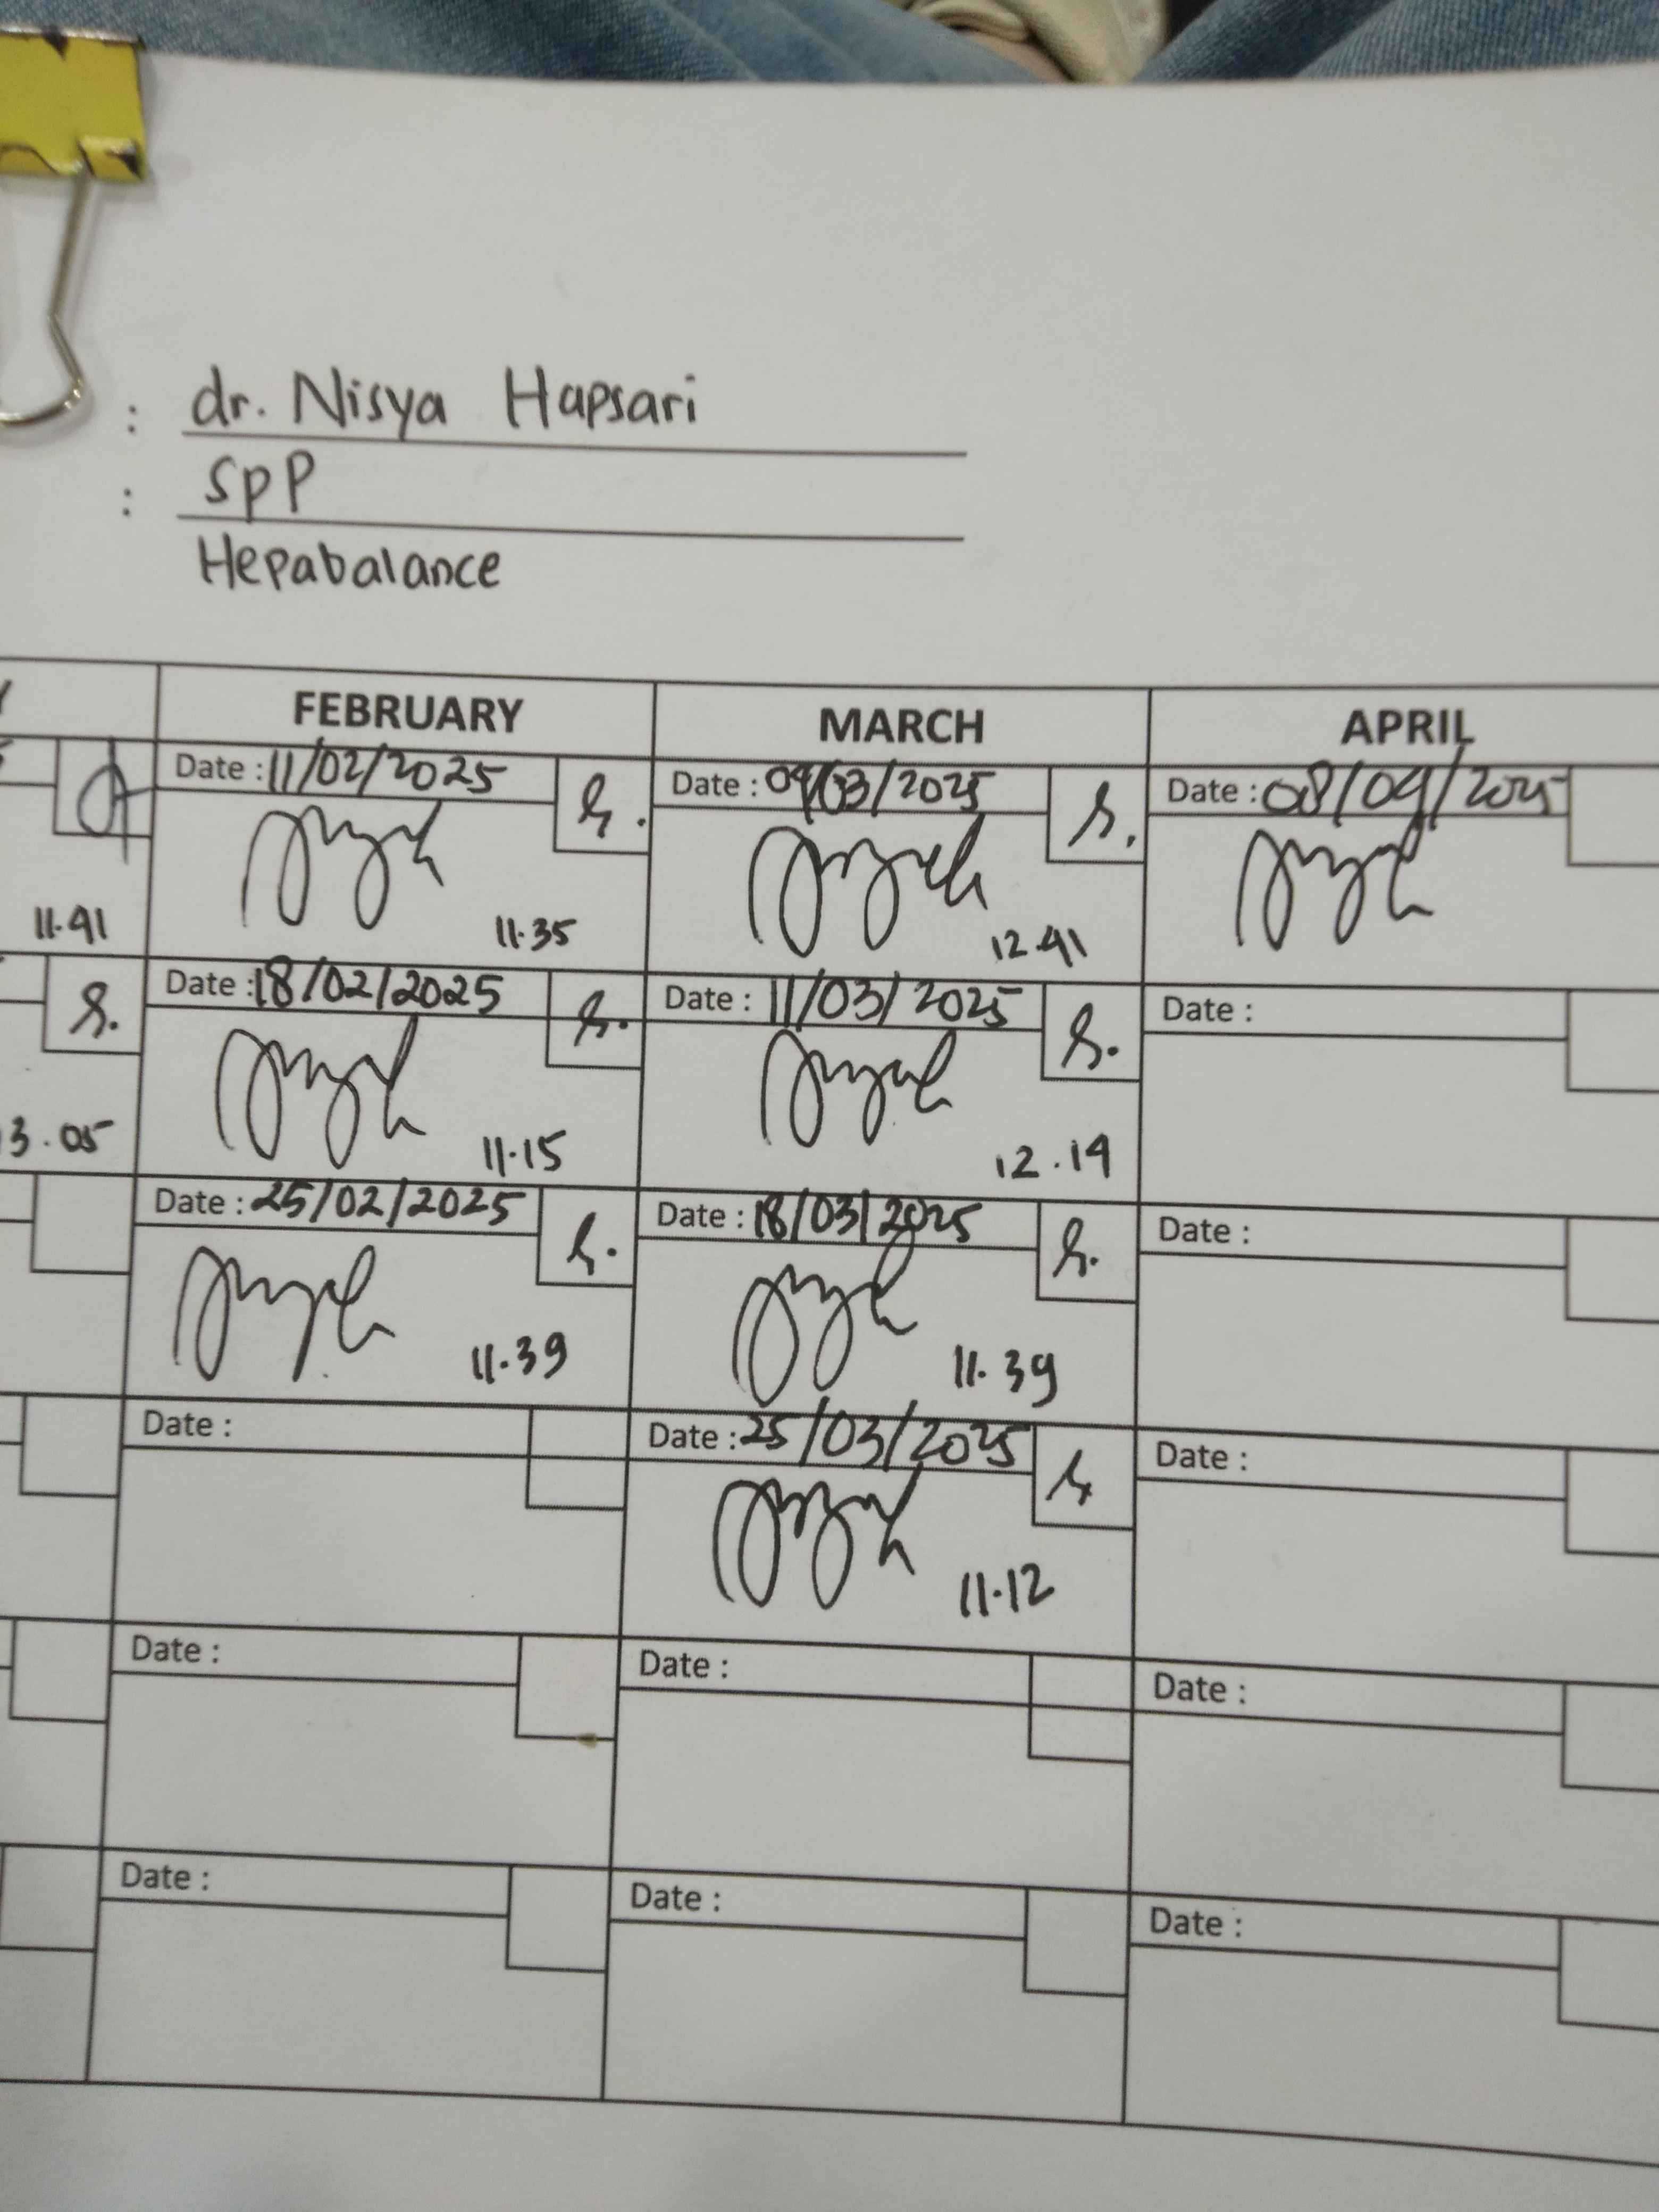 : dr. Nisya Hapsari
: SpP
Hepabalance
FEBRUARY MARCH APRIL
Date : 11/02/2025 Date : 04/03/2025 Date : 08/04/2025
11.41 11.35 12.41
Date : 18/02/2025 Date : 11/03/2025 Date :
3.05 11.15 12.14
Date : 25/02/2025 Date : 18/03/2025 Date :
11.39 11.39
Date : Date : 25/03/2025 Date :
11.12
Date : Date : Date :
Date : Date : Date :